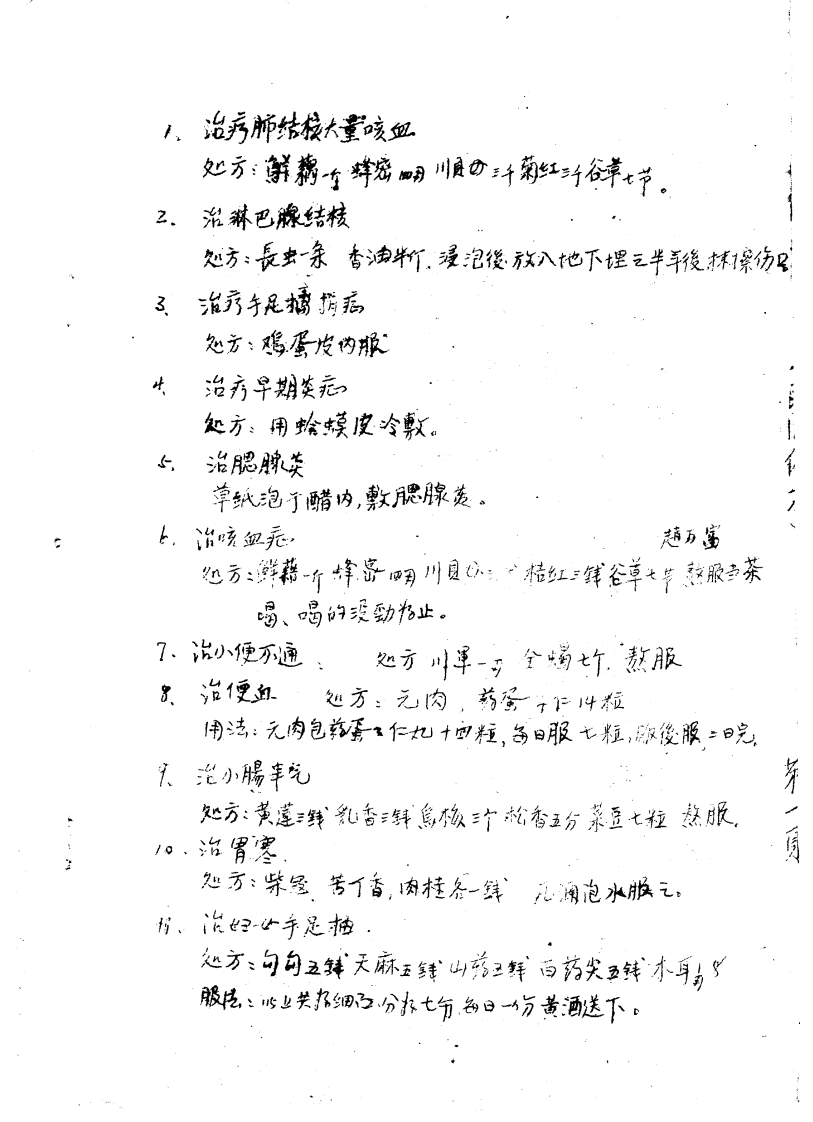 1、治疗肺结核大量咳血
处方：鲜藕一个 蜂密四两 川貝 三千菊红三千谷草七节。
2、治淋巴腺结核
处方：長虫一条 香油半斤．浸泡後放入地下埋之半年後抹擦伤口
3、治疗手足搐 症
处方：鸡蛋皮内服
4、治疗早期炎症
处方：用蛤蟆皮冷敷。
5、治腮腺炎
草纸泡于醋内，敷腮腺炎。
6、治咳血症 趙万富
处方：鲜藕一个 蜂密四两 川貝 桔红三錢谷草七节 熬服当茶
喝、喝的没勁为止。
7、治小便不通： 处方 川軍一 全蝎七个．熬服
8、治便血 处方：元肉，药蛋子仁14粒
用法：元肉包药蛋子仁丸十四粒，每日服七粒，飯後服，二日完．
9、治小腸 气
处方：黄蓮三錢 乳香三錢 烏梅三个 松香五分 菜豆七粒 熬服．
10．治胃寒．
处方：柴 、苦丁香，肉桂各一錢 泡水服之．
11、治妇女手足抽．
处方： 五錢 天麻五錢 山药五錢 白药尖五錢 木耳
服法：以上共为细 分为七分，每日一份 黄酒送下。
第一頁